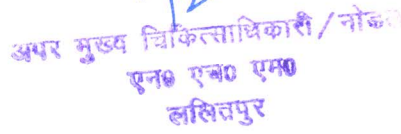 अपर मुख्य चिकित्साधिकारी/नोडल
एन० एच० एम०
ललितपुर